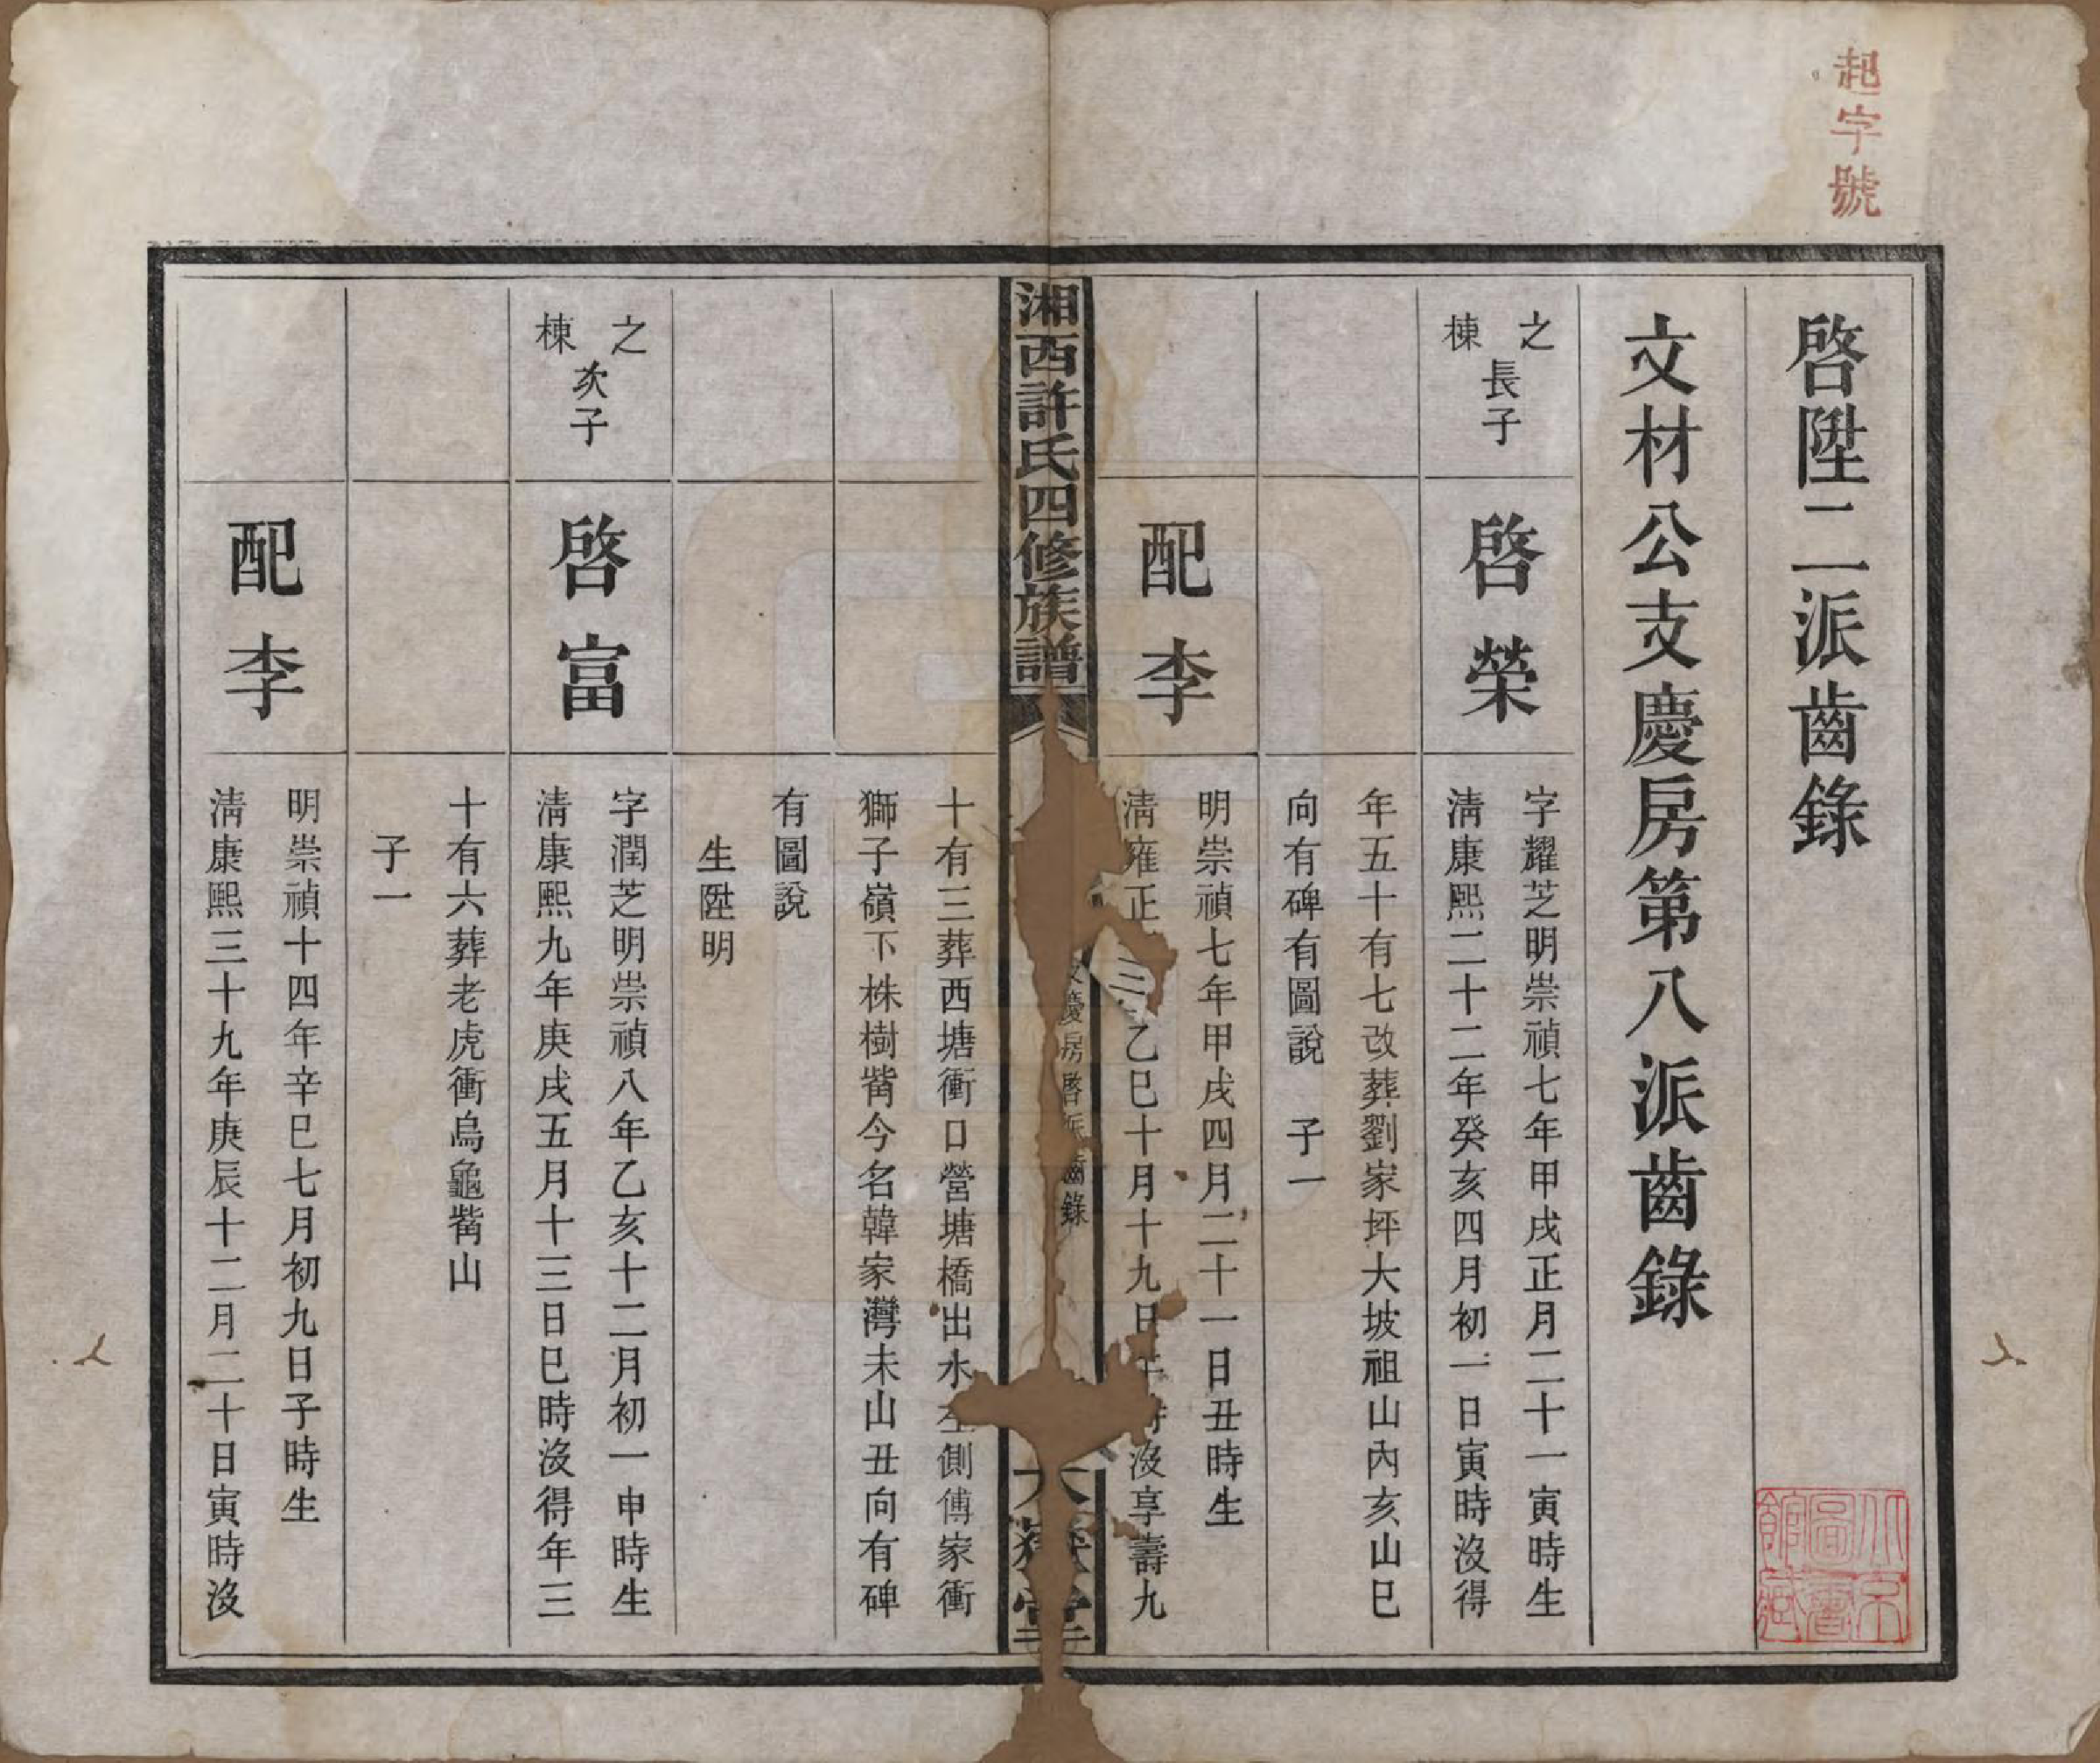 起字號
啓陞二派齒錄
文材公支慶房第八派齒錄
之棟長子
啓榮
字耀芝明崇禎七年甲戌正月二十一寅時生
淸康熙二十二年癸亥四月初一日寅時沒得
年五十有七改葬劉家坪大坡祖山內亥山巳
向有碑有圖說　子一
配李
明崇禎七年甲戌四月二十一日丑時生
淸雍正三乙巳十月十九日時沒享壽九
湘西許氏四修族譜
慶房啓派齒錄
堂
十有三葬西塘衝口營塘橋出水左側傅家衝
獅子嶺下株樹觜今名韓家灣未山丑向有碑
有圖說
生陞明
之棟次子
啓富
字潤芝明崇禎八年乙亥十二月初一申時生
淸康熙九年庚戌五月十三日巳時沒得年三
十有六葬老虎衝烏龜觜山
子一
配李
明崇禎十四年辛巳七月初九日子時生
淸康熙三十九年庚辰十二月二十日寅時沒